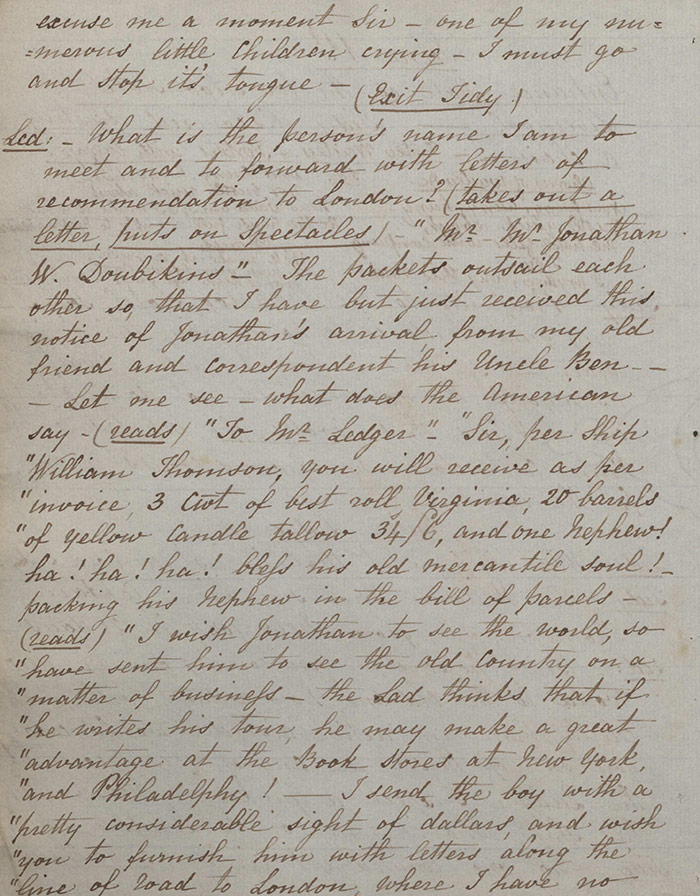 excuse me a moment Sir – one of my nu=
=merous little Children crying – I must go
and stop it's tongue – (Exit Tidy)
Led: – What is the person's name I am to
meet and to forward with letters of
recommendation to London? (takes out a
letter, puts on Spectacles) – "Mr – Mr Jonathan
W. Doubikins" – The packets outsail each
other so, that I have but just received this
notice of Jonathan's arrival from my old
friend and correspondent his Uncle Ben – –
– Let me see – what does the American
say – (reads) "To Mr Ledger" – "Sir, per Ship
"William Thomson, you will receive as per
"invoice, 3 Cwt of best roll Virginia, 20 barrels
"of yellow Candle tallow 34/6, and one Nephew!
ha! ha! ha! bless his old mercantile soul! –
packing his Nephew in the bill of parcels –
(reads) "I wish Jonathan to see the world, so
"have sent him to see the old Country on a
"matter of business – the Lad thinks that if
"he writes his tour, he may make a great
"advantage at the Book Stores at New York,
"and Philadelphy! — I send the boy with a
"pretty considerable sight of dollars, and wish
"you to furnish him with letters along the
"line of road to London, where I have no